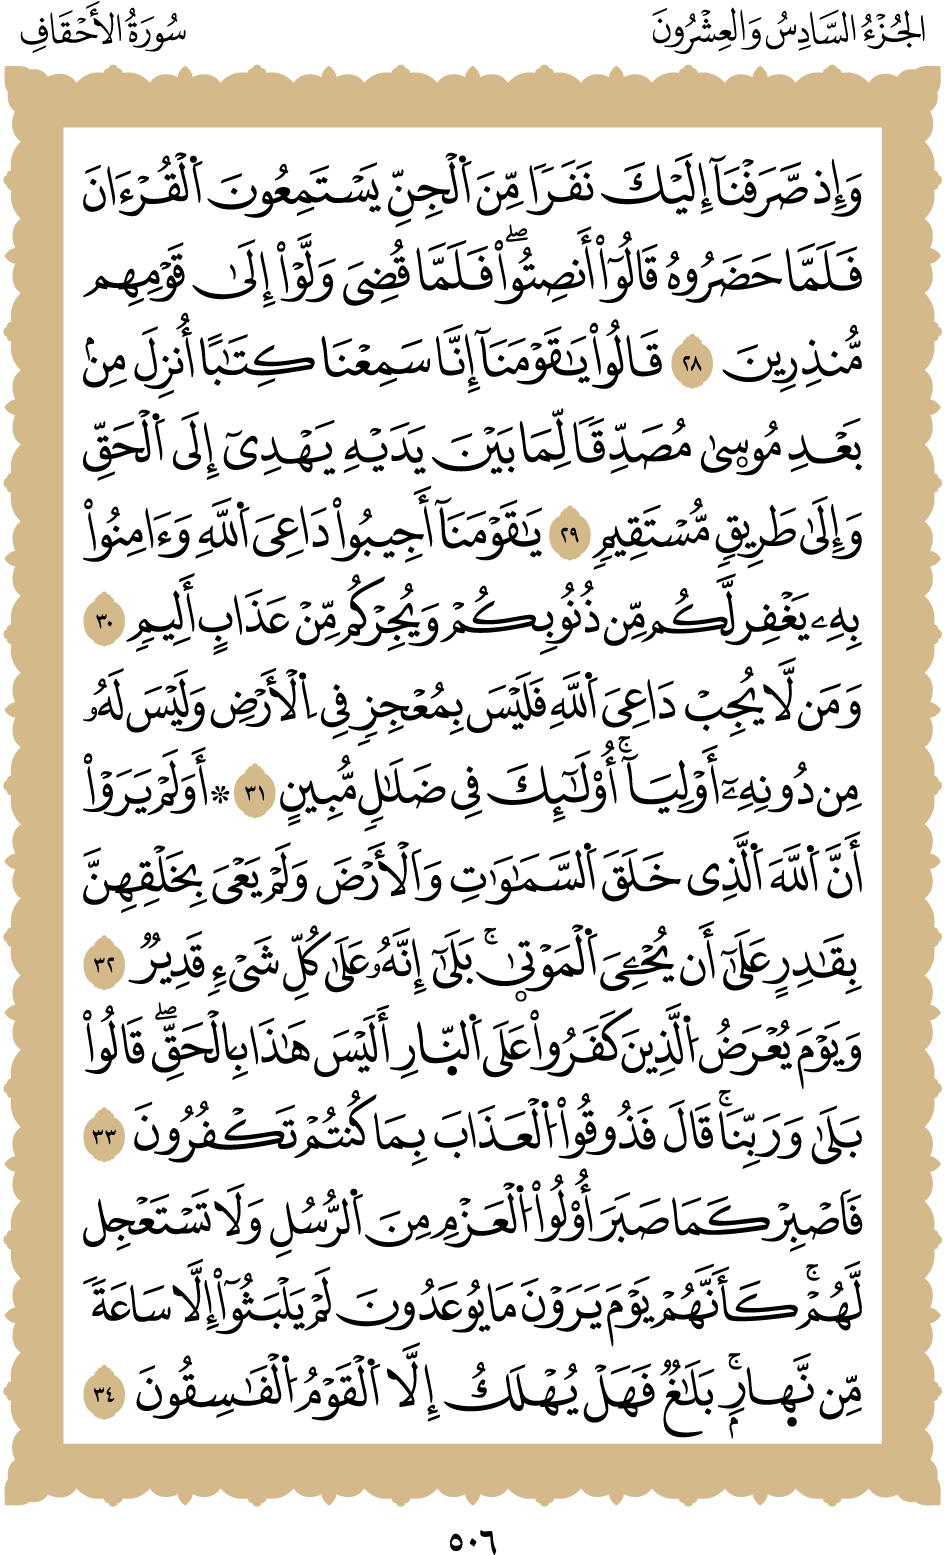 الجُزْءُ السَّادِسُ وَالعِشْرُونَ
سُورَةُ الأَحْقَافِ
وَإِذ صَّرَفْنَآ إِلَيْكَ نَفَرَا مِّنَ اَ۬لْجِنِّ يَسْتَمِعُونَ اَ۬لْقُرْءَانَ
فَلَمَّا حَضَرُوهُ قَالُوٓاْ أَنصِتُواْۖ فَلَمَّا قُضِىَ وَلَّوْاْ إِلَىٰ قَوْمِهِم
مُّنذِرِينَ ٢٨ قَالُواْ يَٰقَوْمَنَآ إِنَّا سَمِعْنَا كِتَٰبًا أُنزِلَ مِنۢ
بَعْدِ مُوسۭىٰ مُصَدِّقَا لِّمَا بَيْنَ يَدَيْهِ يَهْدِىٓ إِلَى اَ۬لْحَقِّ
وَإِلَىٰ طَرِيقٖ مُّسْتَقِيمٖ ٢٩ يَٰقَوْمَنَآ أَجِيبُواْ دَاعِىَ اَ۬للَّهِ وَءَامِنُواْ
بِهِۦ يَغْفِر لَّكُم مِّن ذُنُوبِكُمْ وَيُجِرْكُم مِّنْ عَذَابٍ أَلِيمٖ ٣٠
وَمَن لَّا يُجِبْ دَاعِىَ اَ۬للَّهِ فَلَيْسَ بِمُعْجِزٖ فِى اِ۬لْأَرْضِ وَلَيْسَ لَهُۥ
مِن دُونِهِۦٓ أَوْلِيَآۚ أُوْلَٰٓئِكَ فِى ضَلَٰلٖ مُّبِينٍ ٣١ ۞ أَوَلَمْ يَرَوْاْ
أَنَّ اَ۬للَّهَ اَ۬لَّذِى خَلَقَ اَ۬لسَّمَٰوَٰتِ وَاَ۬لْأَرْضَ وَلَمْ يَعْىَ بِخَلْقِهِنَّ
بِقَٰدِرٍ عَلَىٰٓ أَن يُحْـِۧىَ اَ۬لْمَوْتۭىٰۚ بَلَىٰٓ إِنَّهُۥ عَلَىٰ كُلِّ شَىْءٖ قَدِيرٞ ٣٢
وَيَوْمَ يُعْرَضُ اُ۬لَّذِينَ كَفَرُواْ عَلَى اَ۬لنّ۪ارِ أَلَيْسَ هَٰذَا بِالْحَقِّۖ قَالُواْ
بَلَىٰ وَرَبِّنَاۚ قَالَ فَذُوقُواْ اُ۬لْعَذَابَ بِمَا كُنتُمْ تَكْفُرُونَ ٣٣
فَاَصْبِرْ كَمَا صَبَرَ أُوْلُواْ اُ۬لْعَزْمِ مِنَ اَ۬لرُّسُلِ وَلَا تَسْتَعْجِل
لَّهُمْۚ كَأَنَّهُمْ يَوْمَ يَرَوْنَ مَا يُوعَدُونَ لَمْ يَلْبَثُوٓاْ إِلَّا سَاعَةٗ
مِّن نَّه۪ارِۢۚ بَلَٰغٞ فَهَلْ يُهْلَكُ إِلَّا اَ۬لْقَوْمُ اُ۬لْفَٰسِقُونَ ٣٤
٥٠٦